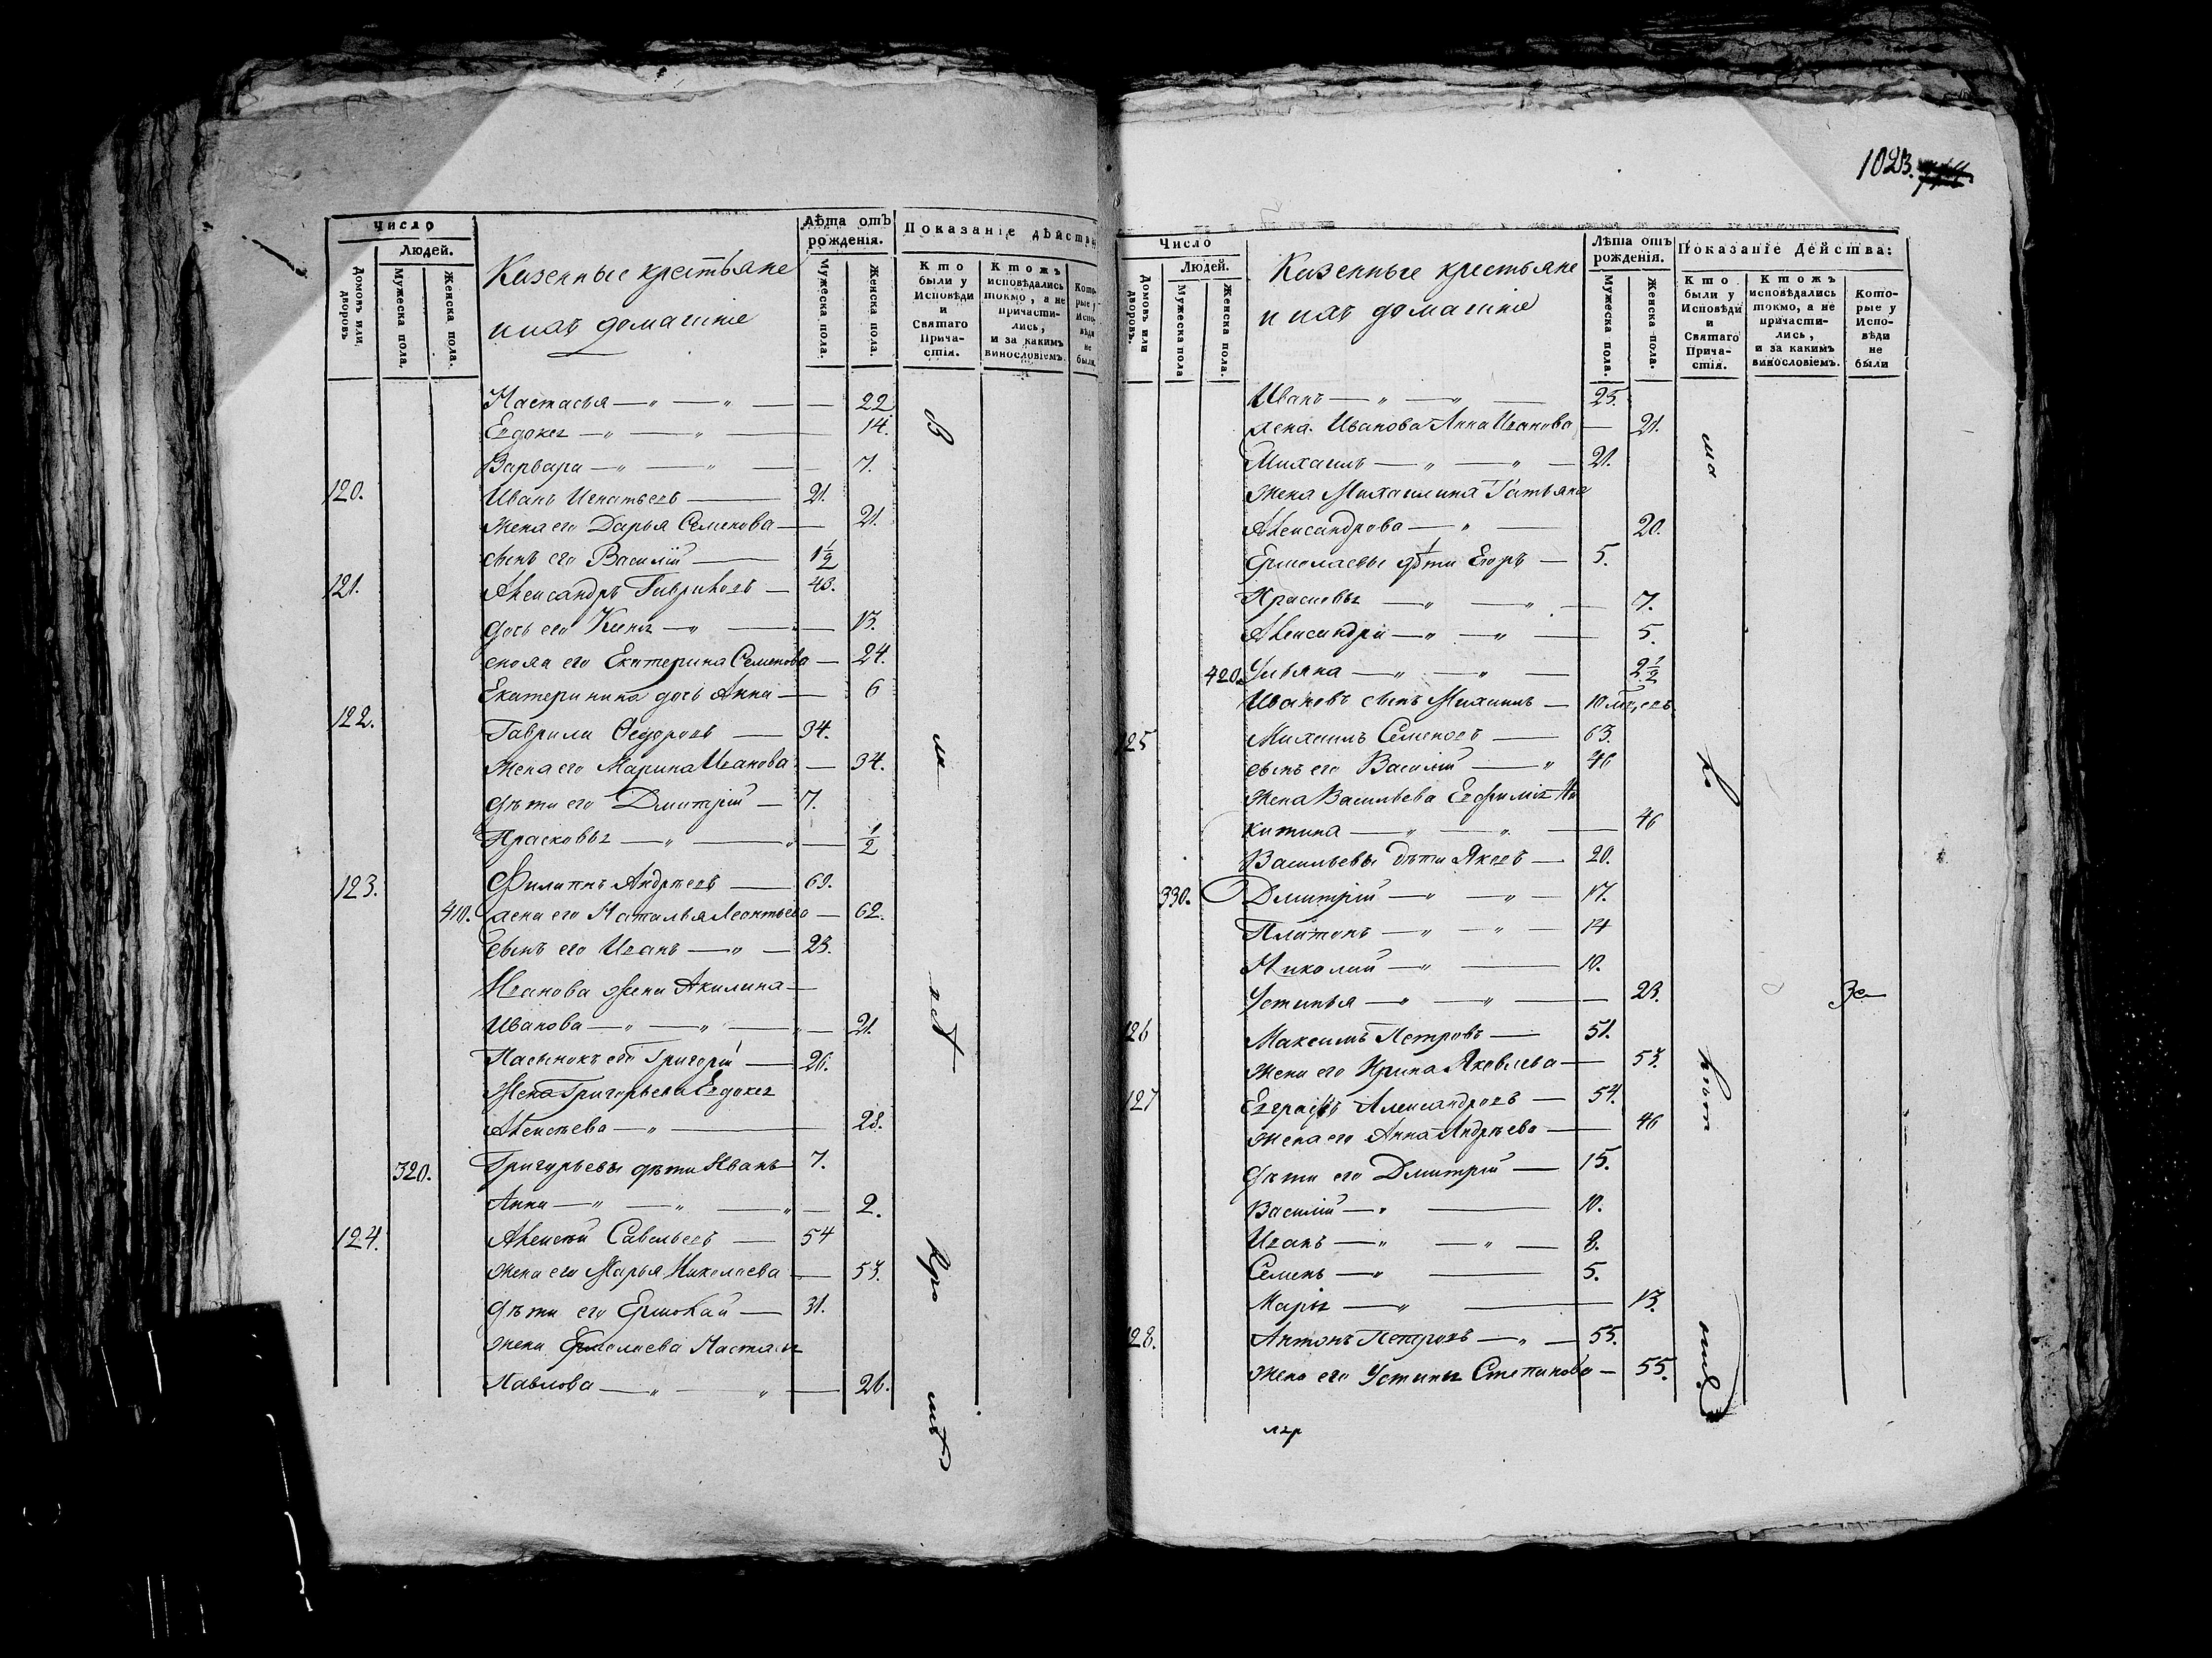 Число
Людей.
Домовъ или дворовъ.
Мужеска пола.
Женска пола.
Казенные крестьяне
и ихъ домашние
Лѣта отъ
рожденія.
Мужеска пола.
Женска пола.
Показаніе дѣйства
Кто
были у
Исповѣди
и
Святаго
Прича-
стія.
Ктожъ
исповѣдались
токмо, а не
причасти-
лись,
и за какимъ
винословіемъ.
Кото-
рые у
Испо-
вѣди
не
были.
Настасья — " — " — — 22
Евдокея — " — " — 14.
Варвара — " — " — 7.
120. Иванъ Игнатьевъ — 21.
жена его Дарья Семенова — 21.
сынъ его Василій — 1 1/2
121. Александръ Гавриловъ — 43.
дочь его — " — " — 13.
сноха его Екатерина Семенова — 24.
Екатеринина дочь Анна — 6
122. Гаврила Федоровъ — 34.
жена его Марина Иванова — 34.
дѣти его Дмитрій — 7.
Прасковья — " — " — 1/2
123. Филиппъ Андреевъ — 63.
410. жена его Наталья Леонтьева — 62.
сынъ его Иванъ — " — 23.
Иванова жена Акилина —
Иванова — " — " — " — 21.
Пасынокъ его Григорій — 26.
Жена Григорьева Евдокея
Алексѣева — " — 28.
320. Григорьевы дѣти Иванъ 7.
Анна — " — " — " — 2.
124. Алексѣй Савельевъ — 54
жена его Марья Николаева — 53.
дѣти его Ермолай — 31.
жена Ермолаева Настасья
Павлова — " — " — 26.
1023.
Число
Людей.
Домовъ или дворовъ.
Мужеска пола
Женска пола.
Казенные крестьяне
и ихъ домашние
Лѣта отъ
рожденія.
Мужеска пола.
Женска пола.
Показаніе Действа:
Кто
были у
Исповѣди
и
Святаго
Прича-
стія.
Ктожъ
исповѣдались
токмо, а не
причасти-
лись,
и за какимъ
винословіемъ.
Кото-
рые у
Испо-
вѣди
не
были
Иванъ — " — " — 25.
жена Иванова Анна Иванова — 21.
Михаилъ — " — " — 21.
жена Михаилина Татьяна
Александрова — " — 20.
Ермолаевы дѣти Егоръ — 5.
Прасковья — " — " — 7.
Александра — " — " — 5.
420. Ульяна — " — " — 2 1/2
Ивановъ сынъ Михаилъ — 10
125 Михаилъ Семеновъ — 63.
сынъ его Василій — " 46
Жена Васильева Евфимія Ни
китина — " — " — 46
Васильевы дѣти — 20.
330. Дмитрій — " — " — 17.
Платонъ — " — " — 14
Николай — " — 10.
Устинья — " — " — 23.
126 Максимъ Петровъ — 51.
жена его Ирина Яковлева — 53.
127 Евграфъ Александровъ — 54.
жена его Анна Андрѣева — 46
дѣти его Дмитрій — 15.
Василій — " — 10.
Иванъ — " — " — 8.
Семенъ — " — 5.
Марія — " — 13.
128. Антонъ Петровъ — " — 55.
жена его Устинья Степанова — 55.